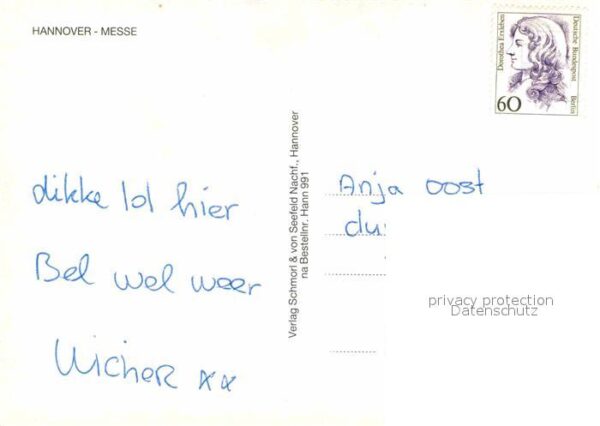 HANNOVER - MESSE
Dorothea Erxleben
Deutsche Bundespost
Berlin
60
dikke lol hier
Bel wel weer
Wicher xx
Verlag Schmorl & von Seefeld Nachf., Hannover
na Bestellnr. Hann 991
Anja oost
du
privacy protection
Datenschutz